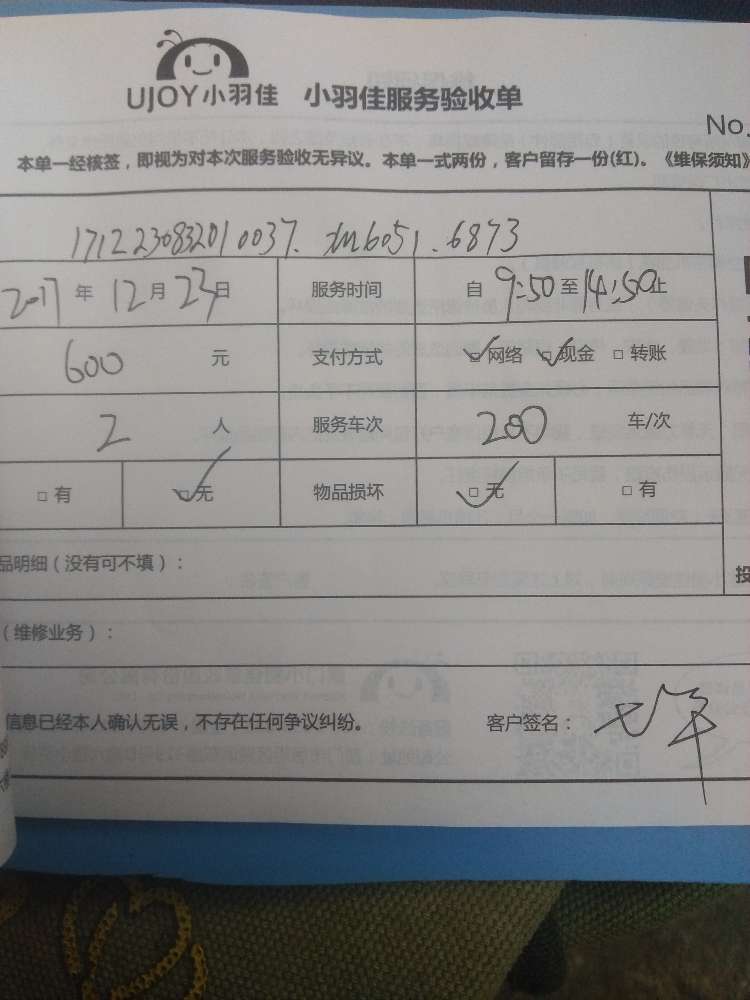 UJOY小羽佳 小羽佳服务验收单
No.
本单一经核签，即视为对本次服务验收无异议。本单一式两份，客户留存一份(红)。《维保须知》
1712230832010037. 6051.6873
2017年12月23日 服务时间 自9:50至14:50止
600元 支付方式 ☑网络 ☑现金 □转账
2人 服务车次 200车/次
□有 ☑无 物品损坏 ☑无 □有
品明细（没有可不填）：
投
（维修业务）：
信息已经本人确认无误，不存在任何争议纠纷。 客户签名：